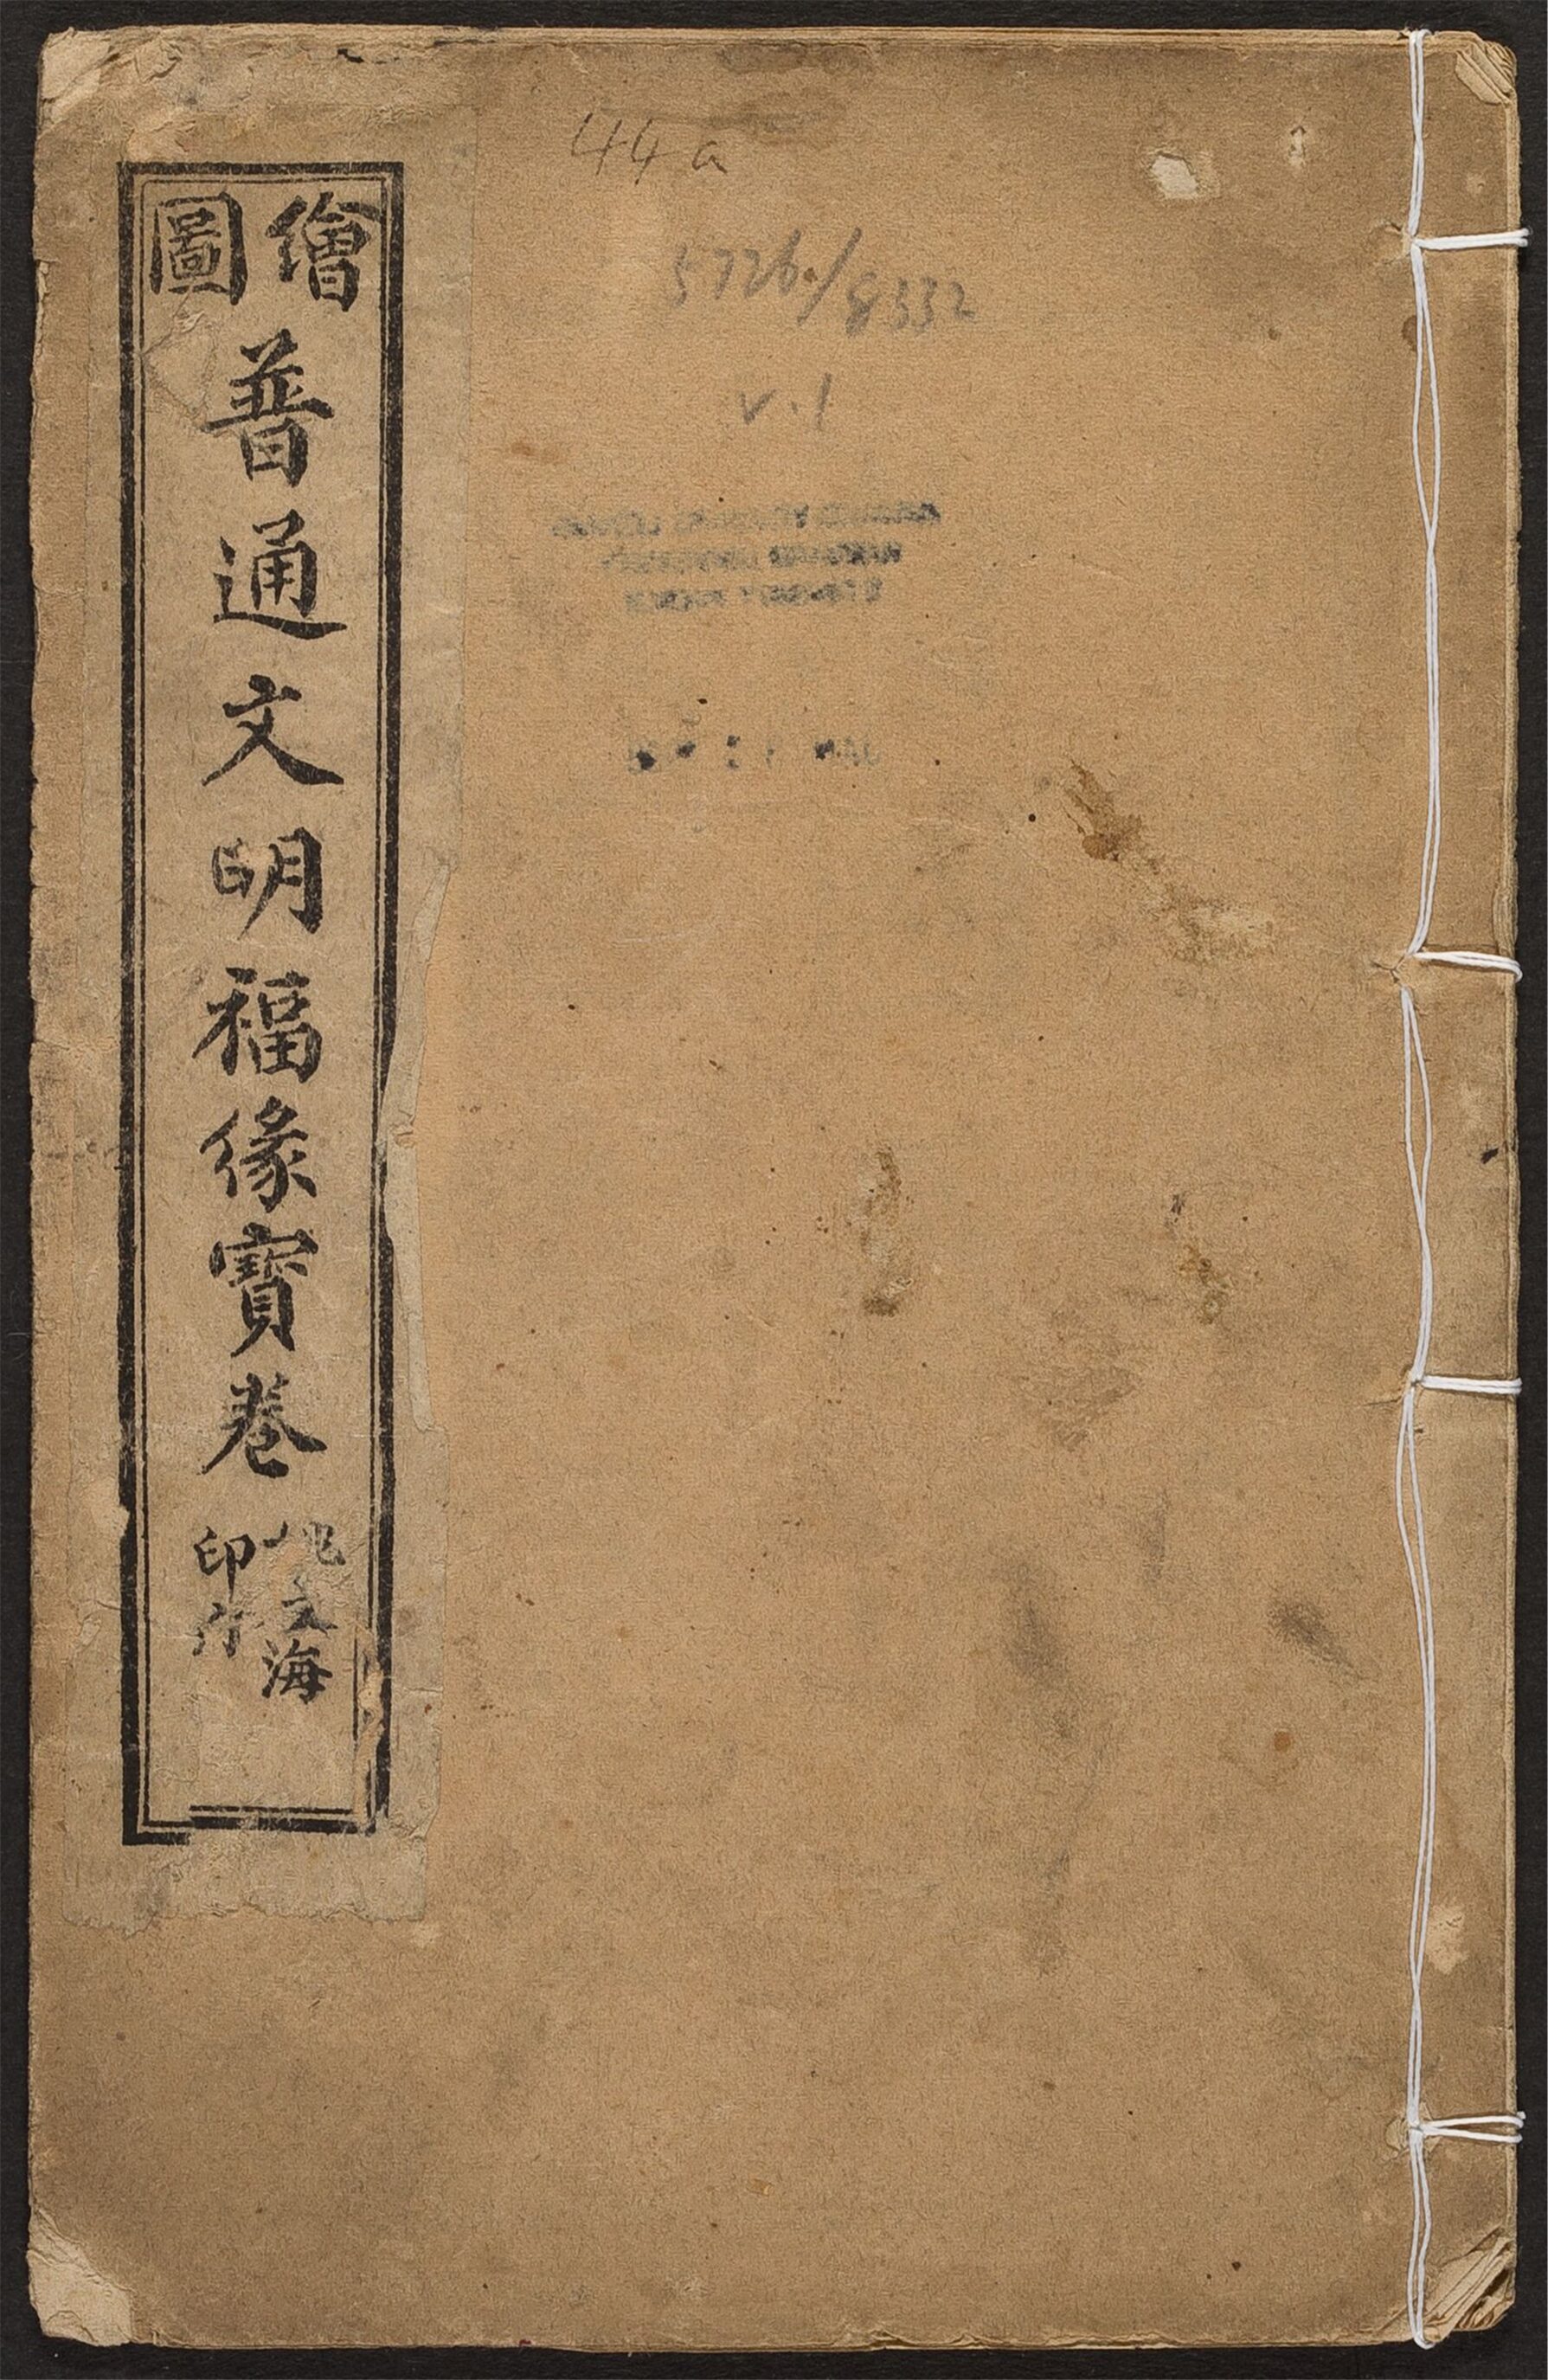 繪圖
普通文明福緣寶卷
文海
印行
44a
5726./8332
v.1